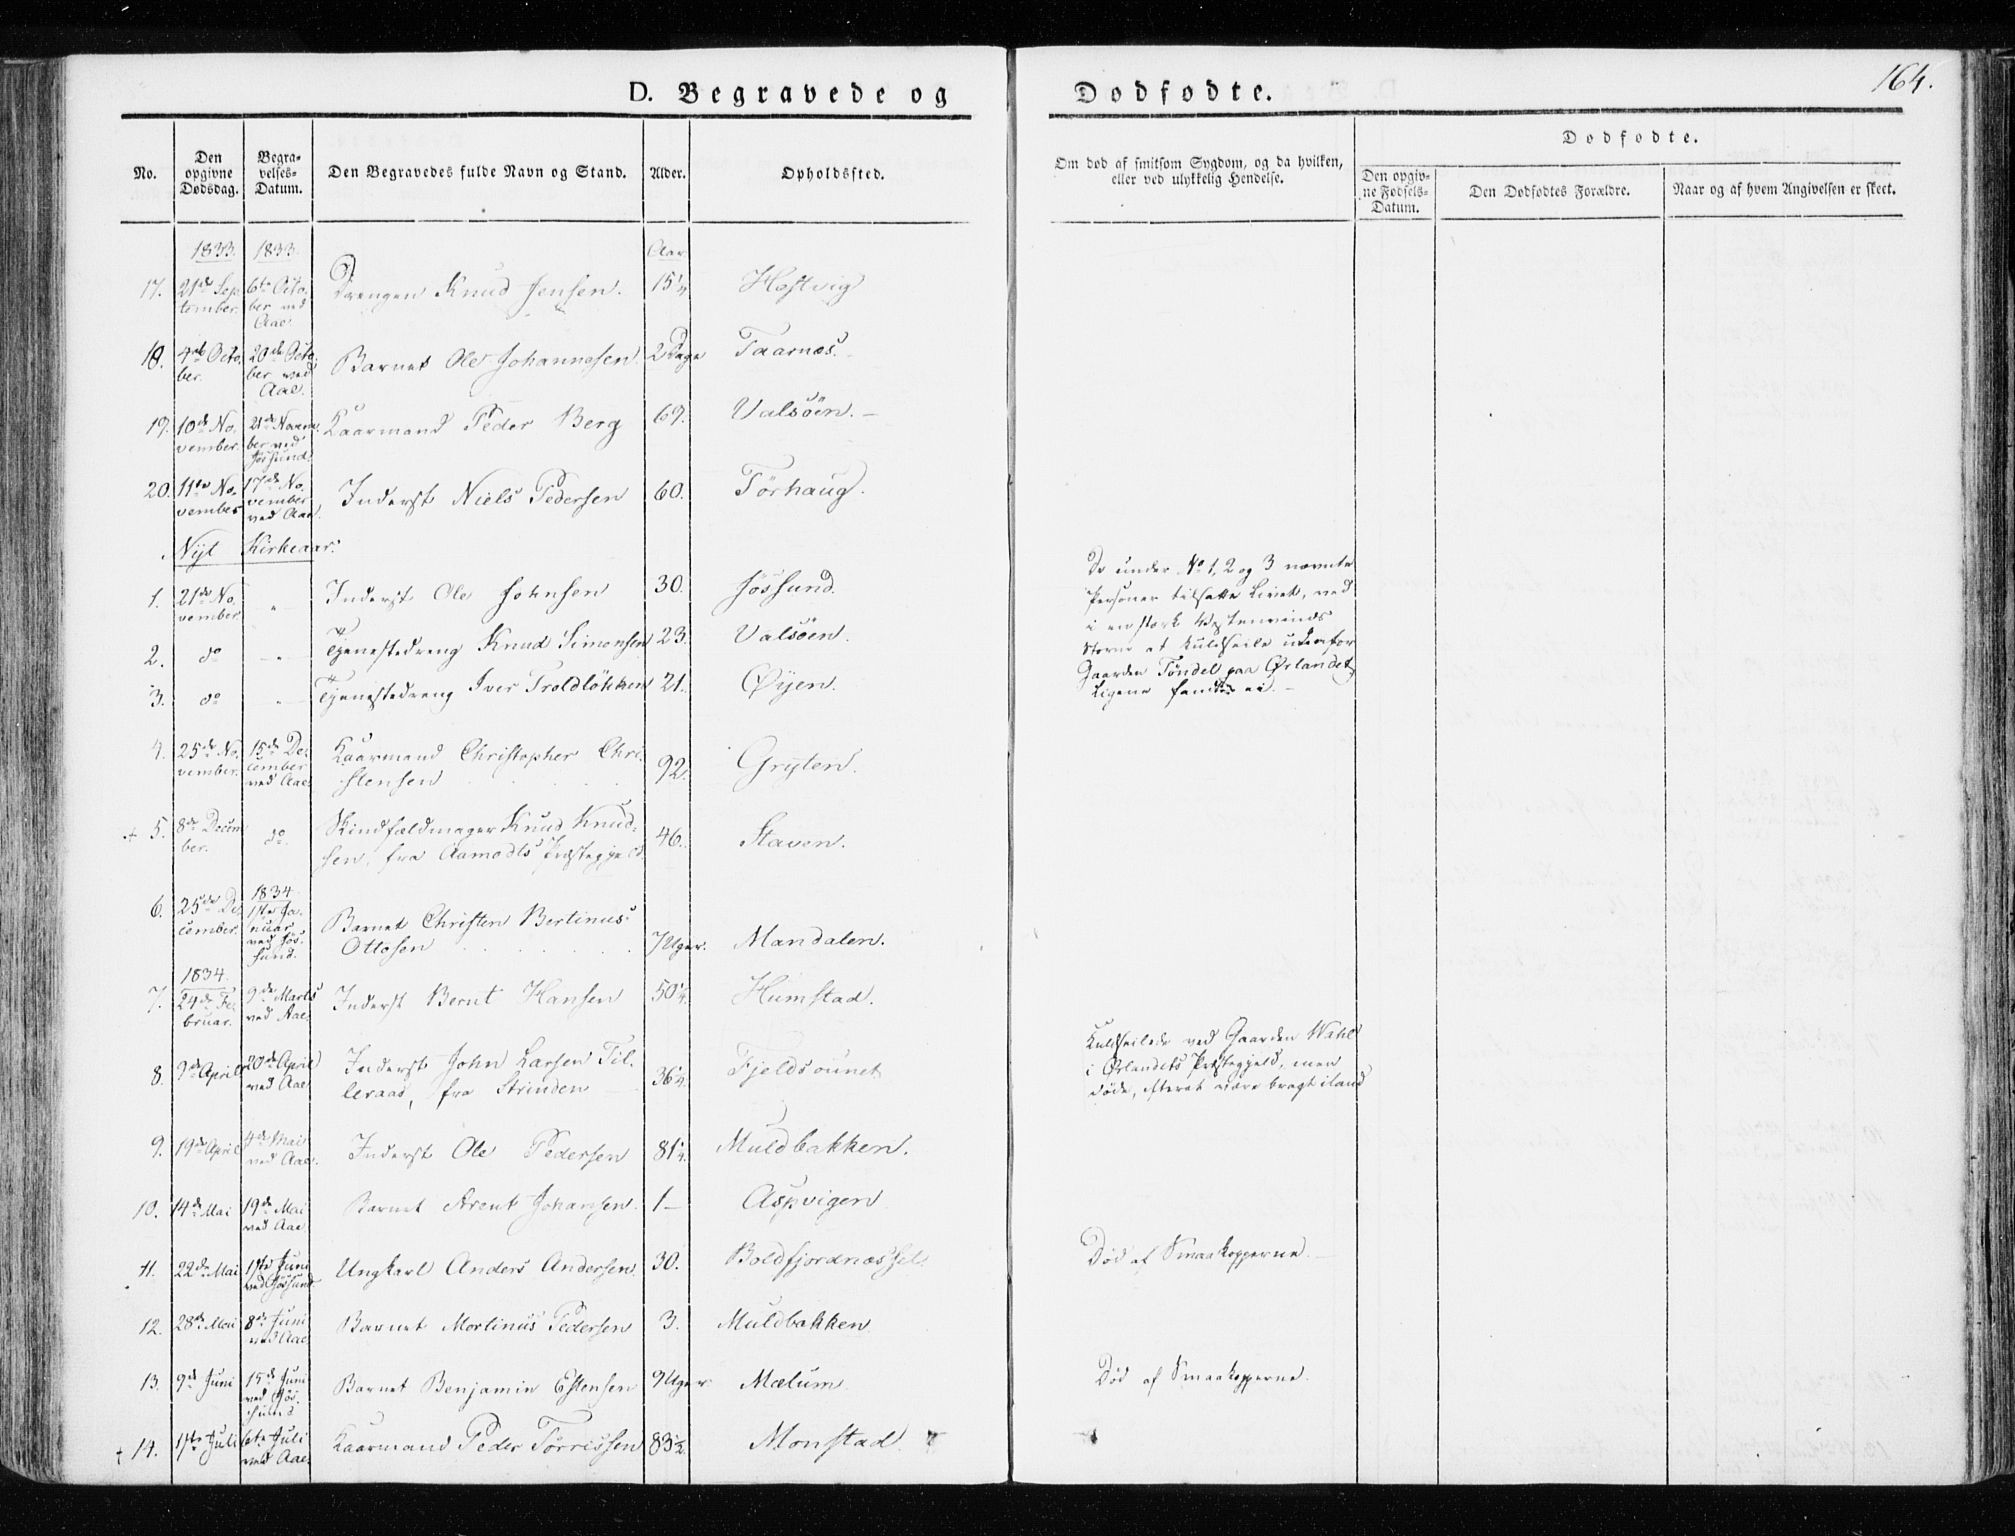 164.
D. Begravede og Dødfødte.
No.
Den opgivne Dødsdag.
Begravelses-Datum.
Den Begravedes fulde Navn og Stand.
Alder.
Opholdssted.
Om død af smitsom Sygdom, og da hvilken, eller ved ulykkelig Hendelse.
Dødfødte.
Den opgivne Fødsels-Datum.
Den Dødfødtes Forældre.
Naar og af hvem Angivelsen er skeet.
1833. 1833. Aar
17. 21de September. 6te October ved Aae. Drengen Knud Jensen. 15 1/4 Hostvig
18. 4de October. 20de October ved Aae. Barnet Ole Johannesen. 2 Dage Taarnes.
19. 10de November. 21de November ved Jössund. Kaarmand Peder Berg 69. Valsöen. –
20. 11te November 17de November ved Aae. Inderst Niels Pedersen 60. Törhaug.
Nyt Kirkeaar.
1. 21de November " Inderst Ole Johnsen 30. Jössund.
De under No 1, 2 og 3 nævnte
Personer tilsatte Livet, ved
i en stærk Vestenvinds
Storm at kuldseile udenfor
Gaarden Töndel paa Ørlandet,
Ligene fandtes ei. –
2. do " Tjenestedreng Knud Simonsen 23. Valsöen.
3. do " Tjenestedreng Iver Troldløkken 21. Øyen.
4. 25de November. 15de December ved Aae. Kaarmand Christopher Christensen 92. Gryten.
+ 5. 8de December. do. Skindfældmager Knud Knudsen, fra Aamodts Præstegjeld. 46. Staven.
6. 25de December. 1834. 1ste Januar ved Jössund. Barnet Christen Bertinus Ottosen 7 Uger. Mandalen.
1834.
7. 24de Februar. 9de Marts ved Aae. Inderst Bernt Hansen 50 1/4. Humstad.
8. 9de April 20de April ved Aae Inderst John Larsen Tilleraas, fra Strinden 36 1/4. Fjeldsöunet
Kuldseilede ved Gaarden Wahl
i Ørlandets Præstegjeld, men
døde, efterat være bragt iland
9. 19de April 4de Mai ved Aae. Inderst Ole Pedersen 81 1/4. Muldbakken.
10. 14de Mai 19de Mai ved Aae Barnet Arent Johansen. 1 – Aspvigen
11. 22de Mai 1ste Juni ved Jössund Ungkarl Anders Andersen. 30. Boldfjordnæsset. Död af Smaakopperne. –
12. 28de Mai 8de Juni ved Aae Barnet Mortinus Pedersen 3. Muldbakken
13. 9de Juni 15de Juni ved Jössund Barnet Benjamin Estensen 9 Uger. Mælum Död af Smaakopperne.
+ 14. 1ste Juli 6te Juli ved Aae. Kaarmand Peder Törrissen 83 1/2. Monstad.